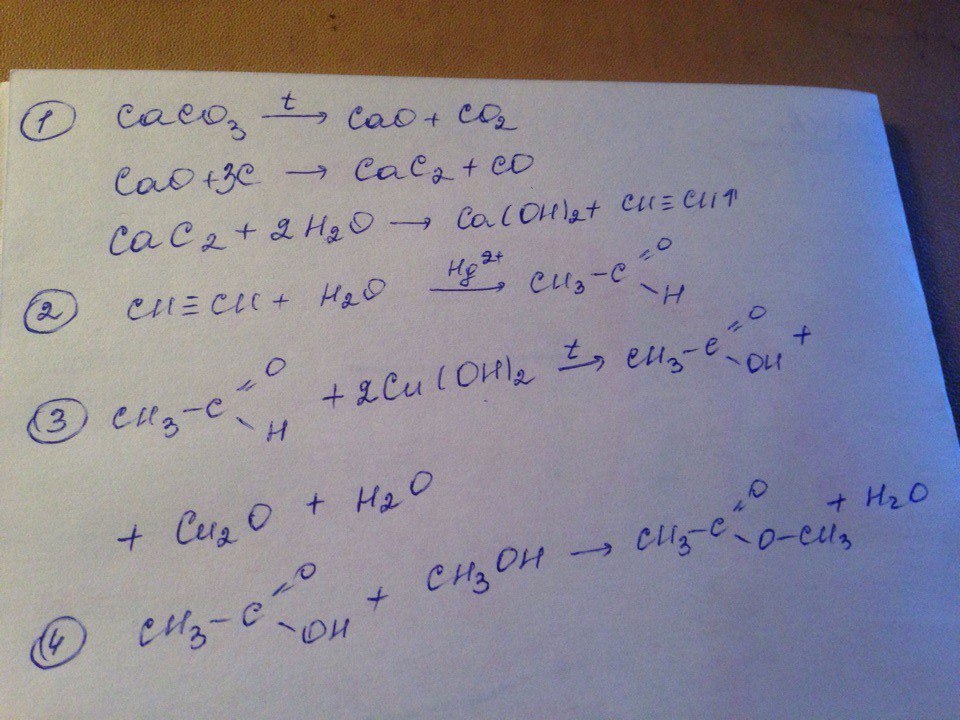 ① CaCO₃ →(t) CaO + CO₂
CaO + 3C → CaC₂ + CO
CaC₂ + 2H₂O → Ca(OH)₂ + CH≡CH↑
② CH≡CH + H₂O →(Hg²⁺) CH₃-C(=O)-H
③ CH₃-C(=O)-H + 2Cu(OH)₂ →(t) CH₃-C(=O)-OH +
+ Cu₂O + H₂O
④ CH₃-C(=O)-OH + CH₃OH → CH₃-C(=O)-O-CH₃ + H₂O